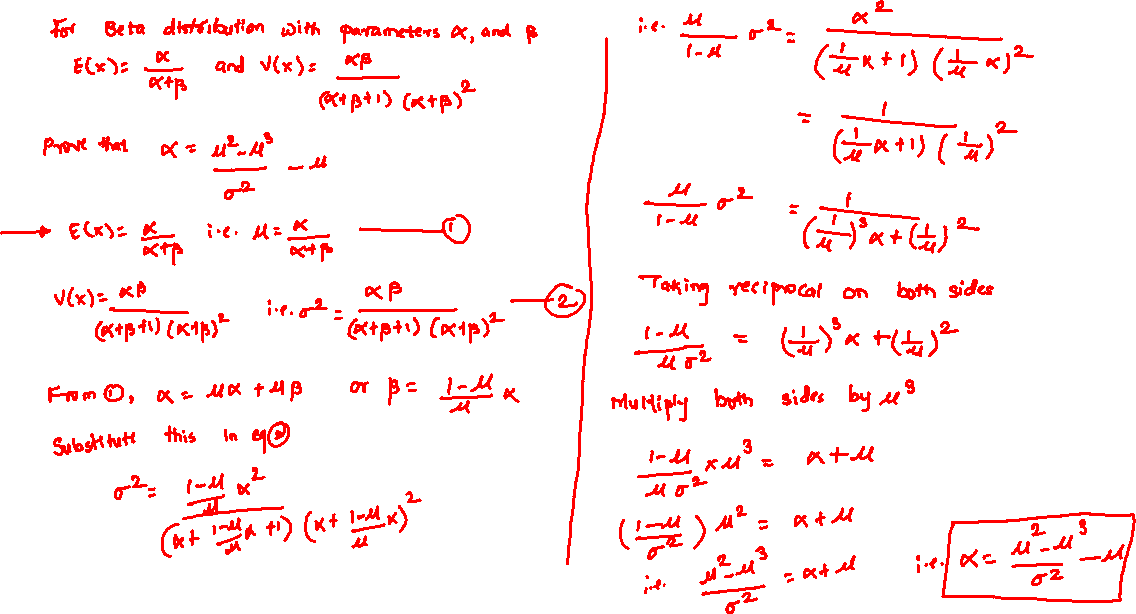 For Beta distribution with parameters α, and β
E(x) = α/(α+β) and V(x) = αβ/((α+β+1)(α+β)²)
Prove that α = (μ²-μ³)/σ² - μ
→ E(x) = α/(α+β) i.e. μ = α/(α+β) — ①
V(x) = αβ/((α+β+1)(α+β)²) i.e. σ² = αβ/((α+β+1)(α+β)²) — ②
From ①, α = μα + μβ or β = (1-μ)/μ α
Substitute this in eq ②
σ² = ((1-μ)/μ α²)/((α + (1-μ)/μ α + 1)(α + (1-μ)/μ α)²)
i.e. μ/(1-μ) σ² = α²/((1/μ α + 1)(1/μ α)²)
= 1/((1/μ α + 1)(1/μ)²)
μ/(1-μ) σ² = 1/((1/μ)³ α + (1/μ)²)
Taking reciprocal on both sides
(1-μ)/(μσ²) = (1/μ)³ α + (1/μ)²
Multiply both sides by μ³
(1-μ)/(μσ²) × μ³ = α + μ
((1-μ)/σ²) μ² = α + μ
i.e. (μ²-μ³)/σ² = α + μ
i.e. α = (μ²-μ³)/σ² - μ